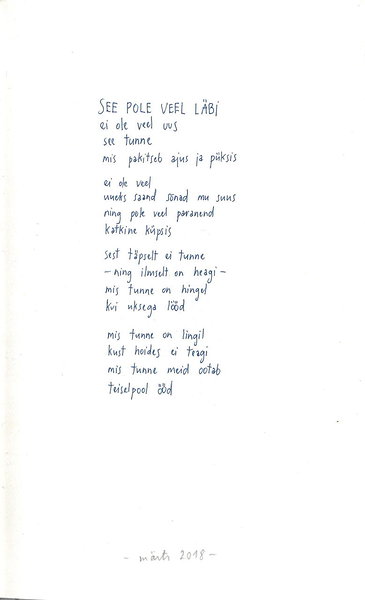 SEE POLE VEEL LÄBI
ei ole veel uus
see tunne
mis pakitseb ajus ja püksis
ei ole veel
uueks saand sõnad mu suus
ning pole veel paranend
katkine küpsis
sest täpselt ei tunne
- ning ilmselt on heagi -
mis tunne on hingel
kui uksega lööd
mis tunne on lingil
kust hoides ei teagi
mis tunne meid ootab
teiselpool ööd
- märts 2018 -